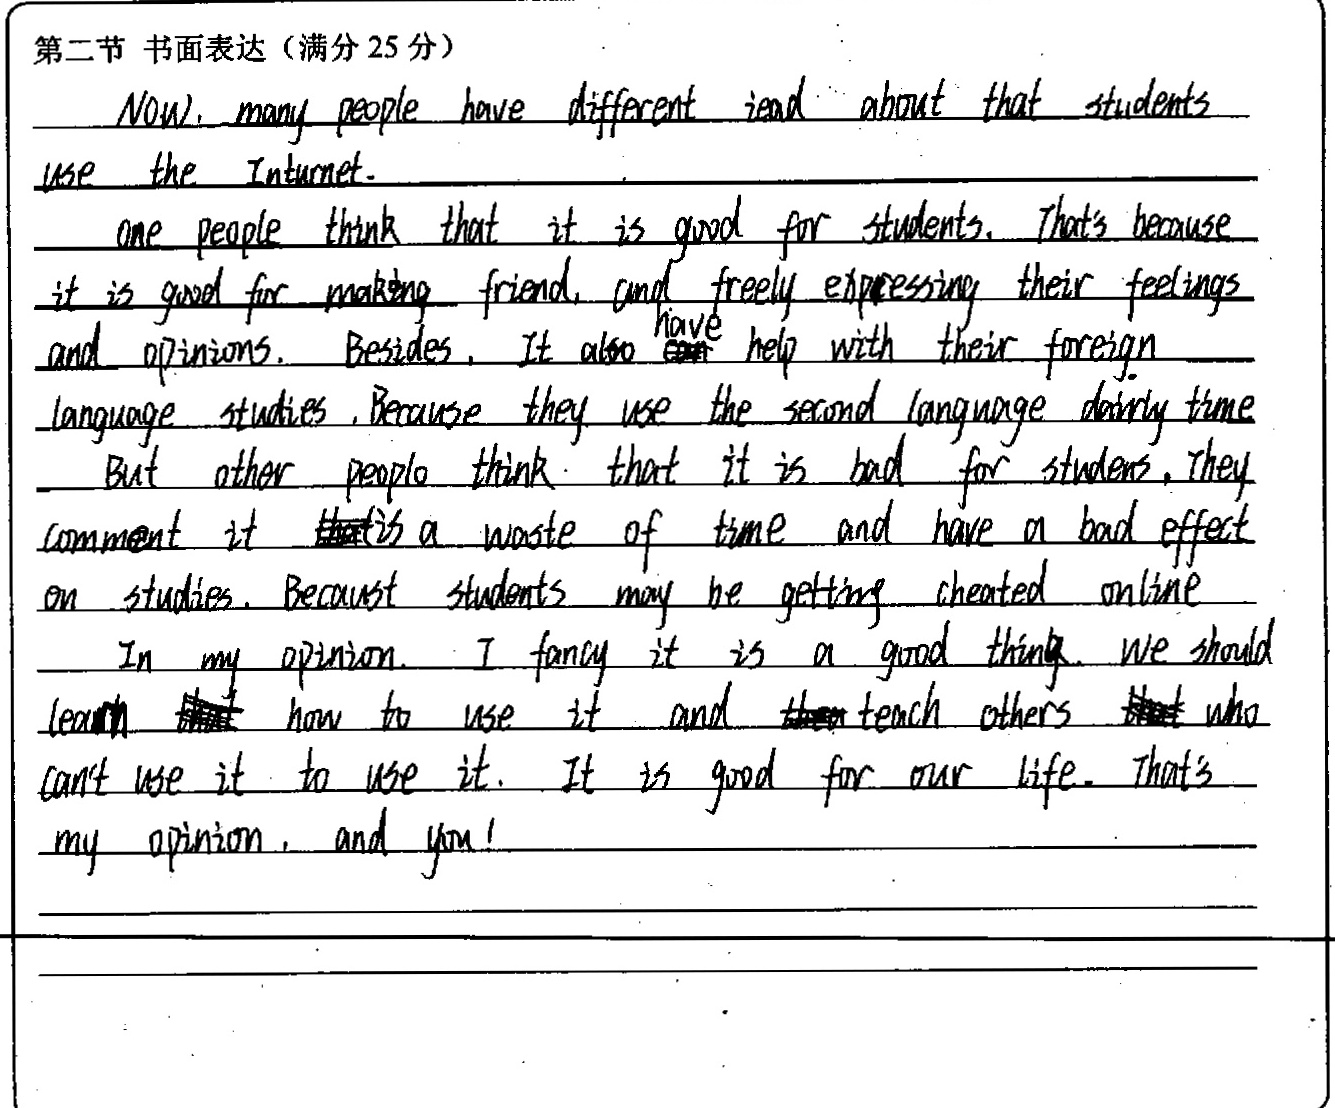 第二节 书面表达（满分 25 分）
Now, many people have different iead about that students
use the Inturnet.
one people think that it is good for students. That's because
it is good for making friend, and freely expressing their feelings
and opinions. Besides, It also have help with their foreign
language studies. Because they use the second language time
But other people think that it is bad for studens. They
comment it is a waste of time and have a bad effect
on studies. Becaust students may be getting cheated online
In my opinion. I fancy it is a good thing. We should
learn how to use it and teach others who
can't use it to use it. It is good for our life. That's
my opinion, and you!